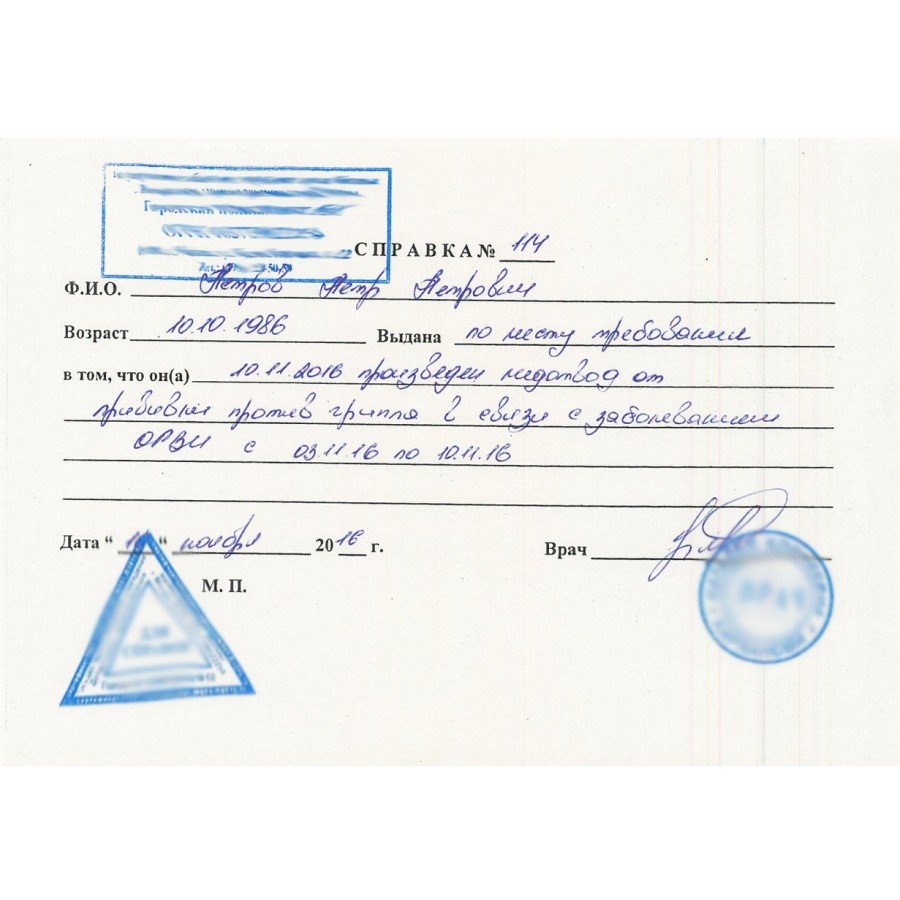 СПРАВКА № 114
Ф.И.О. Петров Петр Петрович
Возраст 10.10.1986 Выдана по месту требования
в том, что он(а) 10.11.2016 произведен медотвод от
прививки против гриппа в связи с заболеванием
ОРВИ с 03.11.16 по 10.11.16
Дата “ “ ноября 2016 г. Врач
М. П.
ДЛЯ
СПРАВОК
ВРАЧ